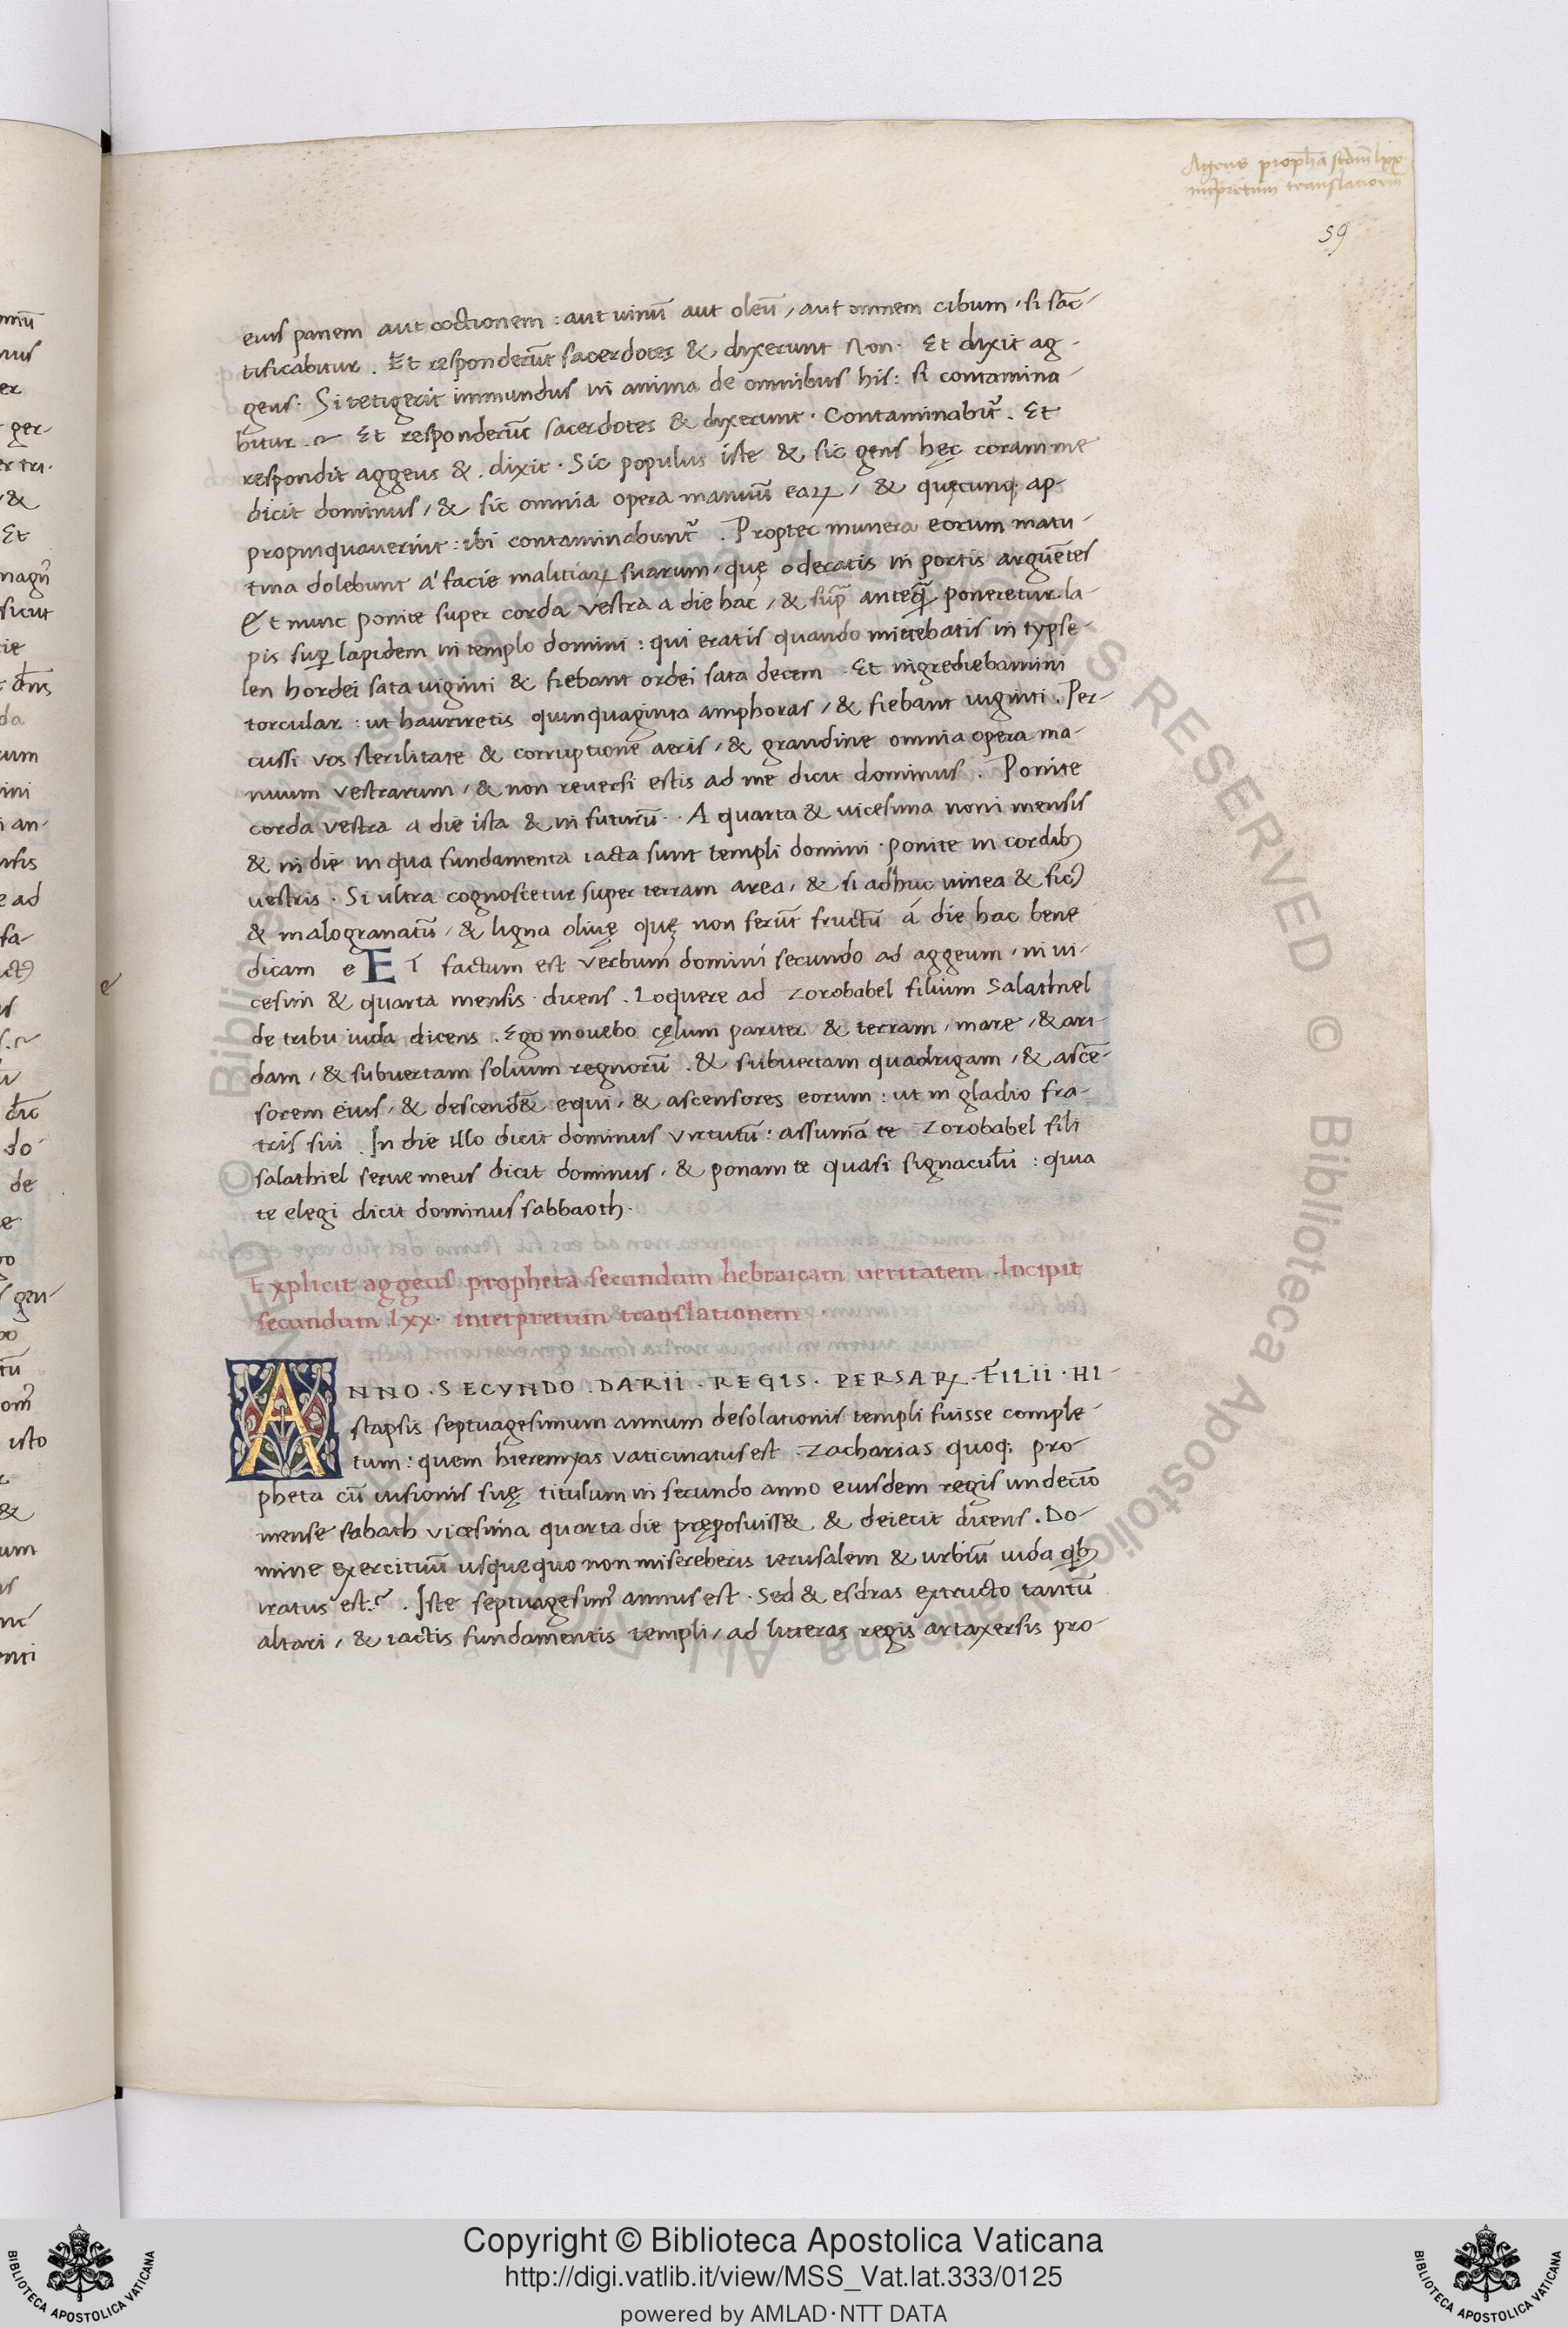 Ageus proph̄a scd̄m lxx
int̄pretum translationem
59
eius panem aut coctionem : aut uinū aut oleū / aut omnem cibum · si sāc-
tificabitur . Et responderūt sacerdotes & dixerunt Non · Et dixit ag-
geus · Si tetigerit immundus in anima de omnibus his : si contamina-
bitur . Et responderūt sacerdotes & dixerunt · Contaminabit᷑ . Et
respondit aggeus & . dixit · Sic populus iste & sic gens hęc coram me
dicit dominus / & sic omnia opera manuū eaꝝ / & quęcunq; ap-
propinquauerint : ibi contaminabunt᷑ . Propter munera eorum matu-
tina dolebunt á facie malitiaꝝ suarum / quę oderatis in portis arguētes
Et nunc ponite super corda vestra a die hac / & sup̄ anteq̄ poneretur la-
pis suꝑ lapidem in templo domini : qui eratis quando mittebatis in typse-
len hordei sata uiginti & fiebant ordei sata decem . Et ingrediebamini
torcular : ut hauriretis quinquaginta amphoras / & fiebant uiginti . Per-
cussi vos sterilitate & corruptione aeris / & grandine omnia opera ma-
nuum vestrarum / & non reuersi estis ad me dicit dominus . Ponite
corda vestra a die ista & in futurū · A quarta & uicesima noni mensis
& in die in qua fundamenta iacta sunt templi domini · ponite in cordibꝫ
uestris · Si ultra cognoscetur super terram area / & si adhuc uinea & ficꝰ
& malogranatū / & ligna oliuę quę non ferūt fructū á die hac bene
dicam e ET factum est verbum domini secundo ad aggeum · in ui-
cesim & quarta mensis · dicens . Loquere ad zorobabel filium Salathiel
de tribu iuda dicens . Ego mouebo cęlum pariter & terram / mare / & ari-
dam / & subuertam solium regnorū . & subuertam quadrigam / & ascē-
sorem eius / & descend& equi / & ascensores eorum : ut in gladio fra-
tris sui . In die illo dicit dominus virtutū : assumā te zorobabel fili
salathiel serue meus dicit dominus / & ponam te quasi signaculū : quia
te elegi dicit dominus sabbaoth ·
Explicit aggeus propheta secundum hebraicam ueritatem . Incipit
secundum lxx · interpretum translationem ·
ANNO · SECVNDO · DARII · REGIS · PERSAꝝ · FILII · HI-
stapsis septuagesimum annum desolationis templi fuisse comple-
tum : quem hieremyas vaticinatus est . zacharias quoq; pro-
pheta cū uisionis suę titulum in secundo anno eiusdem regis undecīo
mense sabath vicesima quarta die pręposuiss& & deiecit dicens . Do-
mine exercituū usquequo non misereberis ierusalem & urbiū iuda qͥbꝫ
iratus est ? . Iste septuagesim᷒ annus est · Sed & esdras extructo tantū
altari / & iactis fundamentis templi / ad litteras regis artaxersis pro-
Copyright © Biblioteca Apostolica Vaticana
http://digi.vatlib.it/view/MSS_Vat.lat.333/0125
powered by AMLAD·NTT DATA
BIBLIOTECA APOSTOLICA VATICANA
BIBLIOTECA APOSTOLICA VATICANA